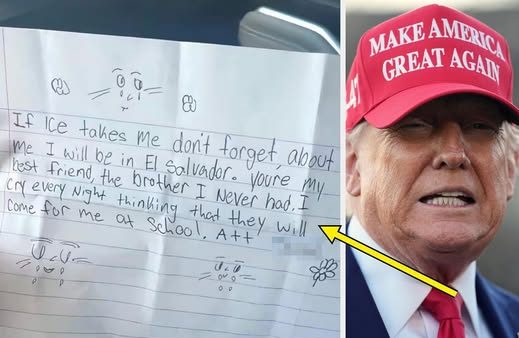 If Ice takes me don't forget about
me I will be in El Salvador. youre my
best friend the brother I Never had. I
cry every Night thinking that they will
come for me at School. Att
MAKE AMERICA
GREAT AGAIN
47